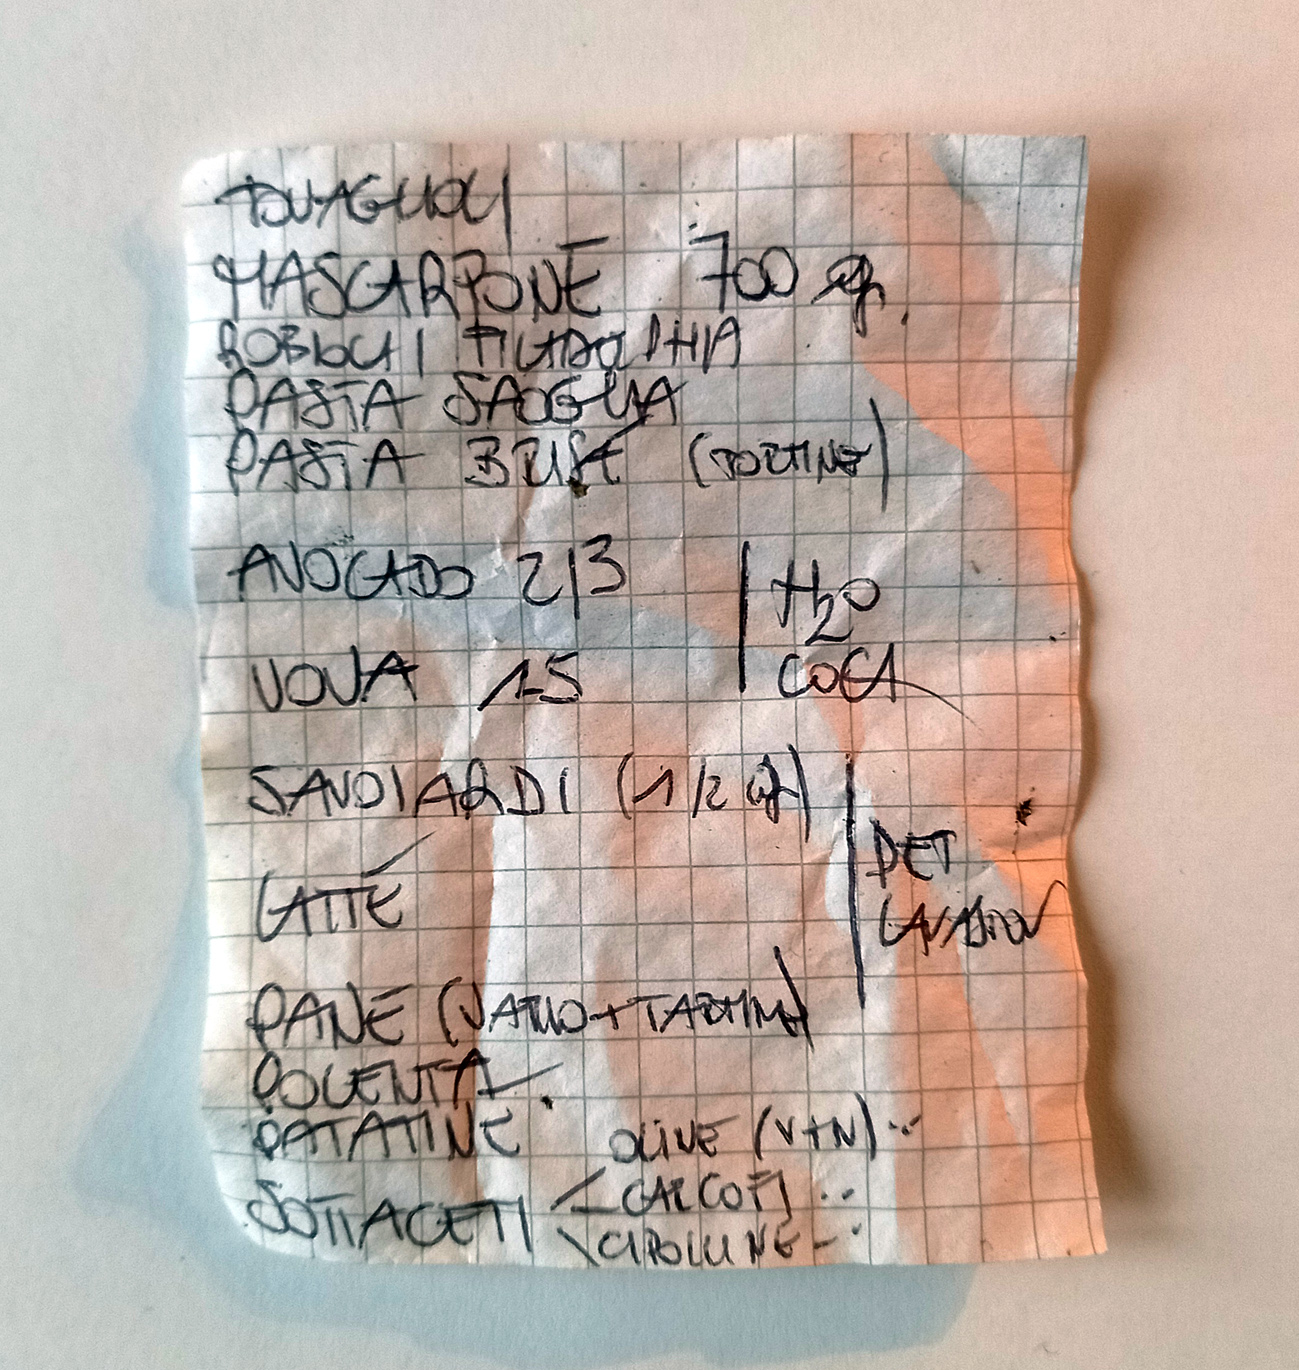 TOVAGLIOLI
MASCARPONE 700 gr.
ROBIOLA / FILADELPHIA
PASTA SFOGLIA
PASTA BRISÉ (TORTINE)
AVOCADO 2/3
H2O
UOVA 15
COCA
SAVOIARDI (1/2 kg)
DET
LATTE
LAVASTOV
PANE (VATRO + TARTINE)
POLENTA
PATATINE OLIVE (V+N)
SOTTACETI CARCOFI
CIPOLLINE